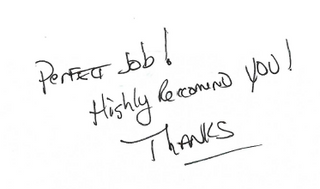 Perfect Job!
Highly Recommend you!
Thanks